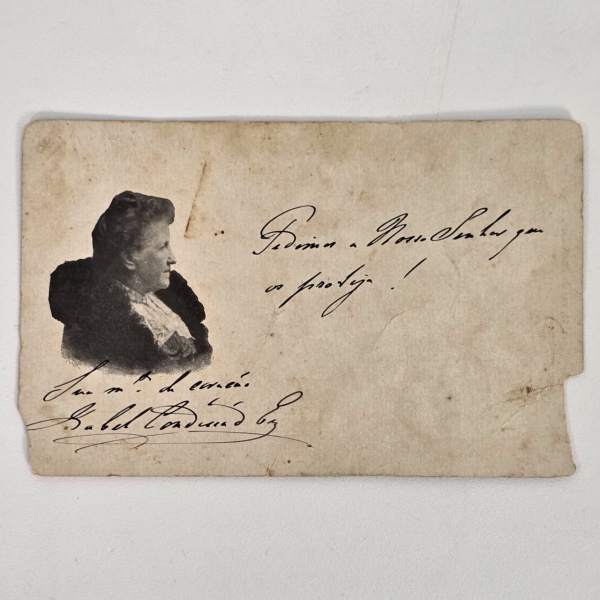 Pedimos a Nosso Senhor que
os proteja!
Sua m.to de coração
Isabel Condessa d'Eu